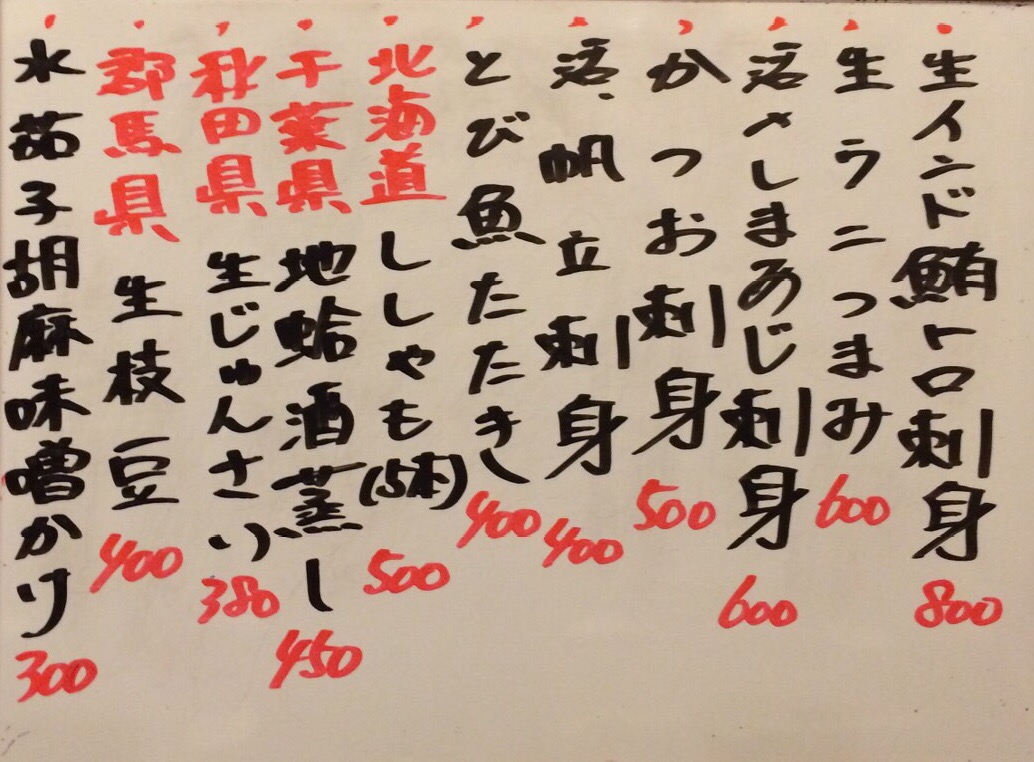 生インド鮪トロ刺身 800
生ウニつまみ 600
活〆しまあじ刺身 600
かつお刺身 500
活帆立刺身 400
とび魚たたき 400
北海道ししゃも(5本) 500
千葉県地蛤酒蒸し 450
秋田県生じゅんさい 380
郡馬県生枝豆 400
水茄子胡麻味噌かけ 300